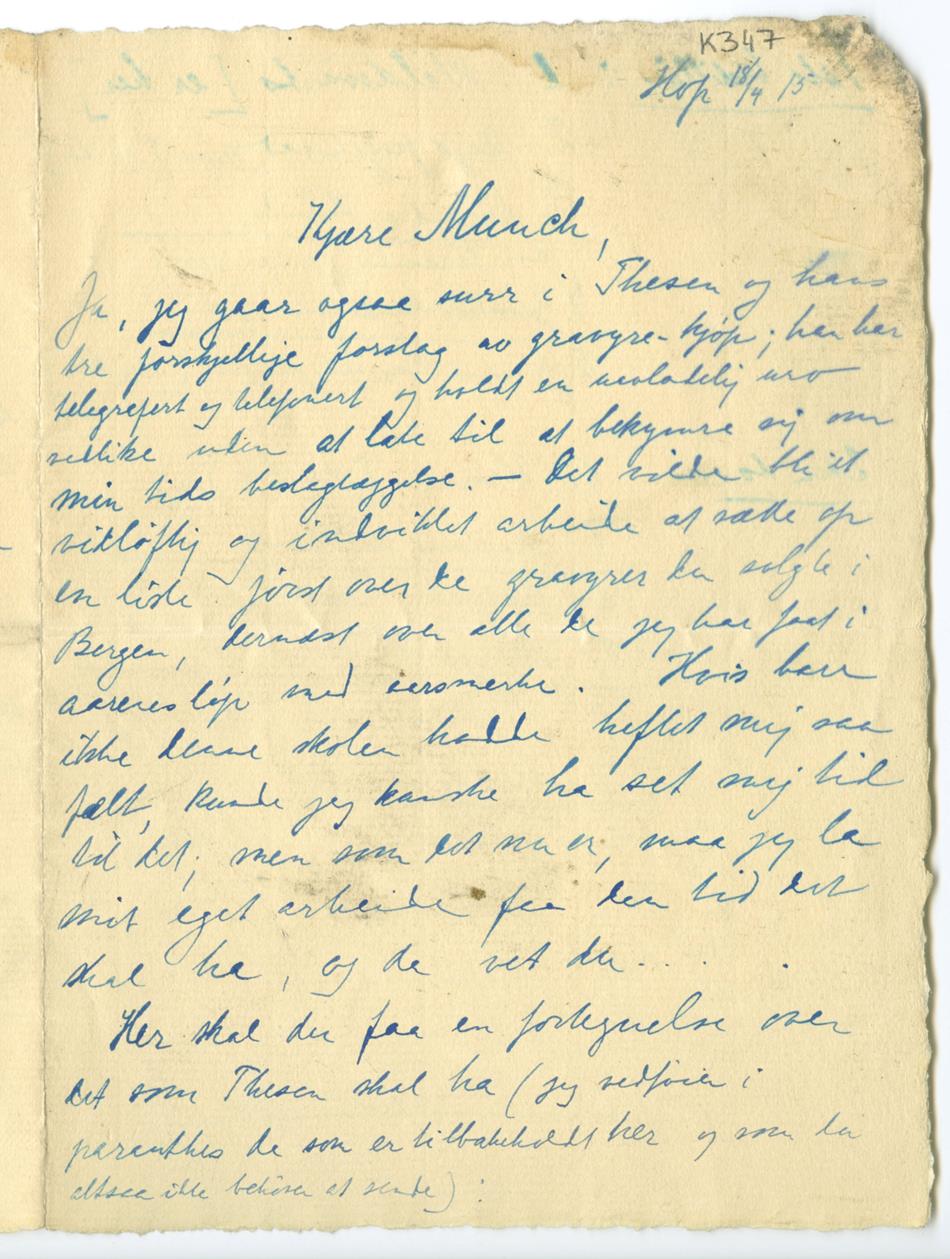 K347
Hop 18/4 15
Kjære Munch,
Ja, jeg gaar ogsaa surr i Thesen og hans
tre forskjellije forslag av gravyre-kjøp; han har
telegrefert og telefonert og holdt en uavladelij uro
vedlike uden at late til at bekymre sij om
min tids beslaglæggelse. – Det vilde bli et
vidløftij og indviklet arbeide at sætte op
en liste først over de gravyrer du solgte i
Bergen, dernæst over alle de jeg har faat i
aarenes løp med aarsmerke. Hvis bare
ikke denne skolen hadde heftet mij saa
fælt, kunde jeg kanske ha set mij tid
til det; men som det nu er, maa jeg la
mit eget arbeide faa den tid det
skal ha, og da vet du....
Her skal du faa en fortegnelse over
det som Thesen skal ha (jeg vedføier i
paranthes de som er tilbakeholdt her og som du
altsaa ikke behøver at sende):